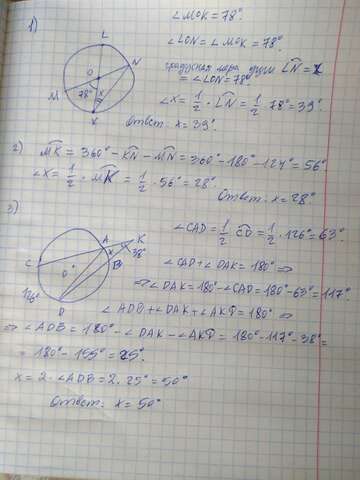 1)
∠MOK = 78°
∠LON = ∠MOK = 78°.
L
N
O
78°
x
M
K
градусная мера дуги LN =
= ∠LON = 78°
∠x = 1/2 · LN = 1/2 · 78° = 39°
Ответ: x = 39°.
2) MK = 360° - KN - MN = 360° - 180° - 124° = 56°
∠x = 1/2 · MK = 1/2 · 56° = 28°
Ответ: x = 28°
3)
A
K
38°
x
B
C
O
126°
D
∠CAD = 1/2 CD = 1/2 · 126° = 63°
∠CAD + ∠DAK = 180° ⇒
⇒ ∠DAK = 180° - ∠CAD = 180° - 63° = 117°
∠ADB + ∠DAK + ∠AKD = 180° ⇒
⇒ ∠ADB = 180° - ∠DAK - ∠AKD = 180° - 117° - 38° =
= 180° - 155° = 25°.
x = 2 · ∠ADB = 2 · 25° = 50°
Ответ: x = 50°